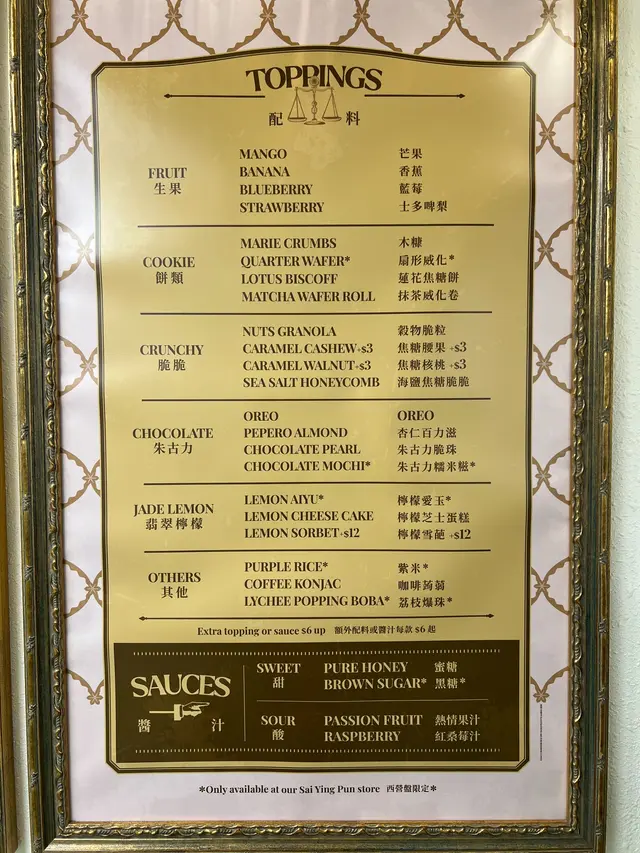 TOPPINGS
配 料
FRUIT
生果
MANGO 芒果
BANANA 香蕉
BLUEBERRY 藍莓
STRAWBERRY 士多啤梨
COOKIE
餅類
MARIE CRUMBS 木糠
QUARTER WAFER* 扇形威化*
LOTUS BISCOFF 蓮花焦糖餅
MATCHA WAFER ROLL 抹茶威化卷
CRUNCHY
脆脆
NUTS GRANOLA 穀物脆粒
CARAMEL CASHEW+$3 焦糖腰果 +$3
CARAMEL WALNUT+$3 焦糖核桃 +$3
SEA SALT HONEYCOMB 海鹽焦糖脆脆
CHOCOLATE
朱古力
OREO OREO
PEPERO ALMOND 杏仁百力滋
CHOCOLATE PEARL 朱古力脆珠
CHOCOLATE MOCHI* 朱古力糯米糍*
JADE LEMON
翡翠檸檬
LEMON AIYU* 檸檬愛玉*
LEMON CHEESE CAKE 檸檬芝士蛋糕
LEMON SORBET+$12 檸檬雪葩 +$12
OTHERS
其他
PURPLE RICE* 紫米*
COFFEE KONJAC 咖啡蒟蒻
LYCHEE POPPING BOBA* 荔枝爆珠*
Extra topping or sauce $6 up 額外配料或醬汁每款 $6 起
SAUCES
醬 汁
SWEET
甜
PURE HONEY 蜜糖
BROWN SUGAR* 黑糖*
SOUR
酸
PASSION FRUIT 熱情果汁
RASPBERRY 紅桑莓汁
*Only available at our Sai Ying Pun store 西營盤限定*